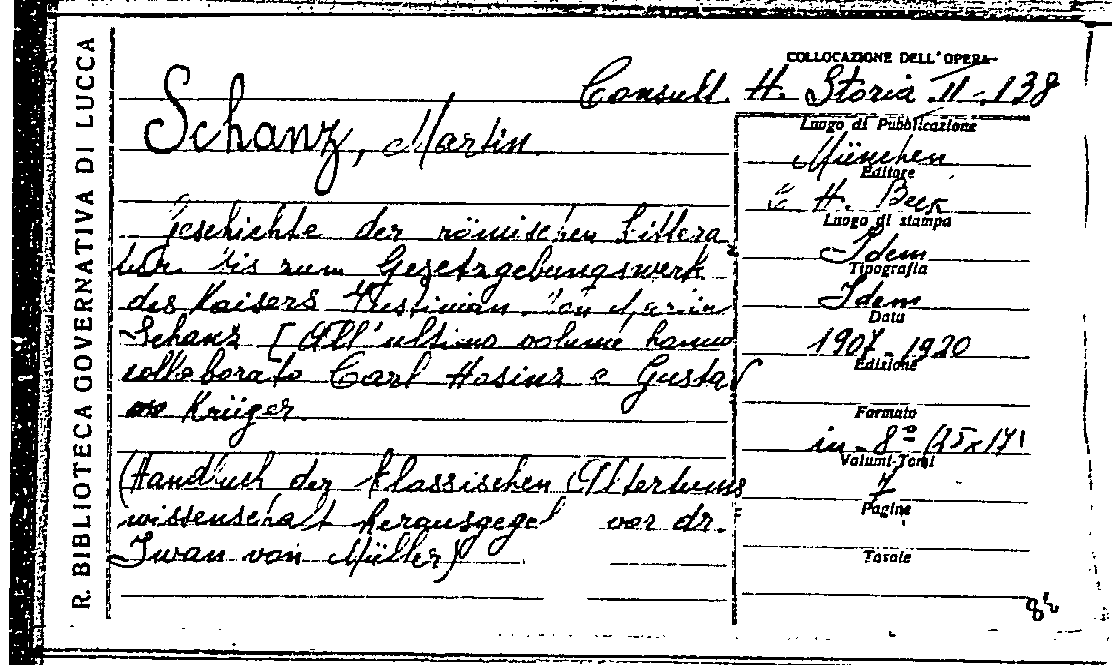 R. BIBLIOTECA GOVERNATIVA DI LUCCA
COLLOCAZIONE DELL'OPERA
Consult. H. Storia II-138
Schanz, Martin
Geschichte der römischen Littera
tur bis zum Gesetzgebungswerk
des Kaisers Justinian von Martin
Schanz [All'ultimo volume hanno
collaborato Carl Hosius e Gustav
Krüger
(Handbuch der klassischen Altertums
wissenschaft herausgegeb von dr.
Iwan von Müller)
Luogo di Pubblicazione
München
Editore
C. H. Beck
Luogo di stampa
Idem
Tipografia
Idem
Data
1907-1920
Edizione
Formato
in-8º (25x17)
Volumi-Tomi
7
Pagine
Tavole